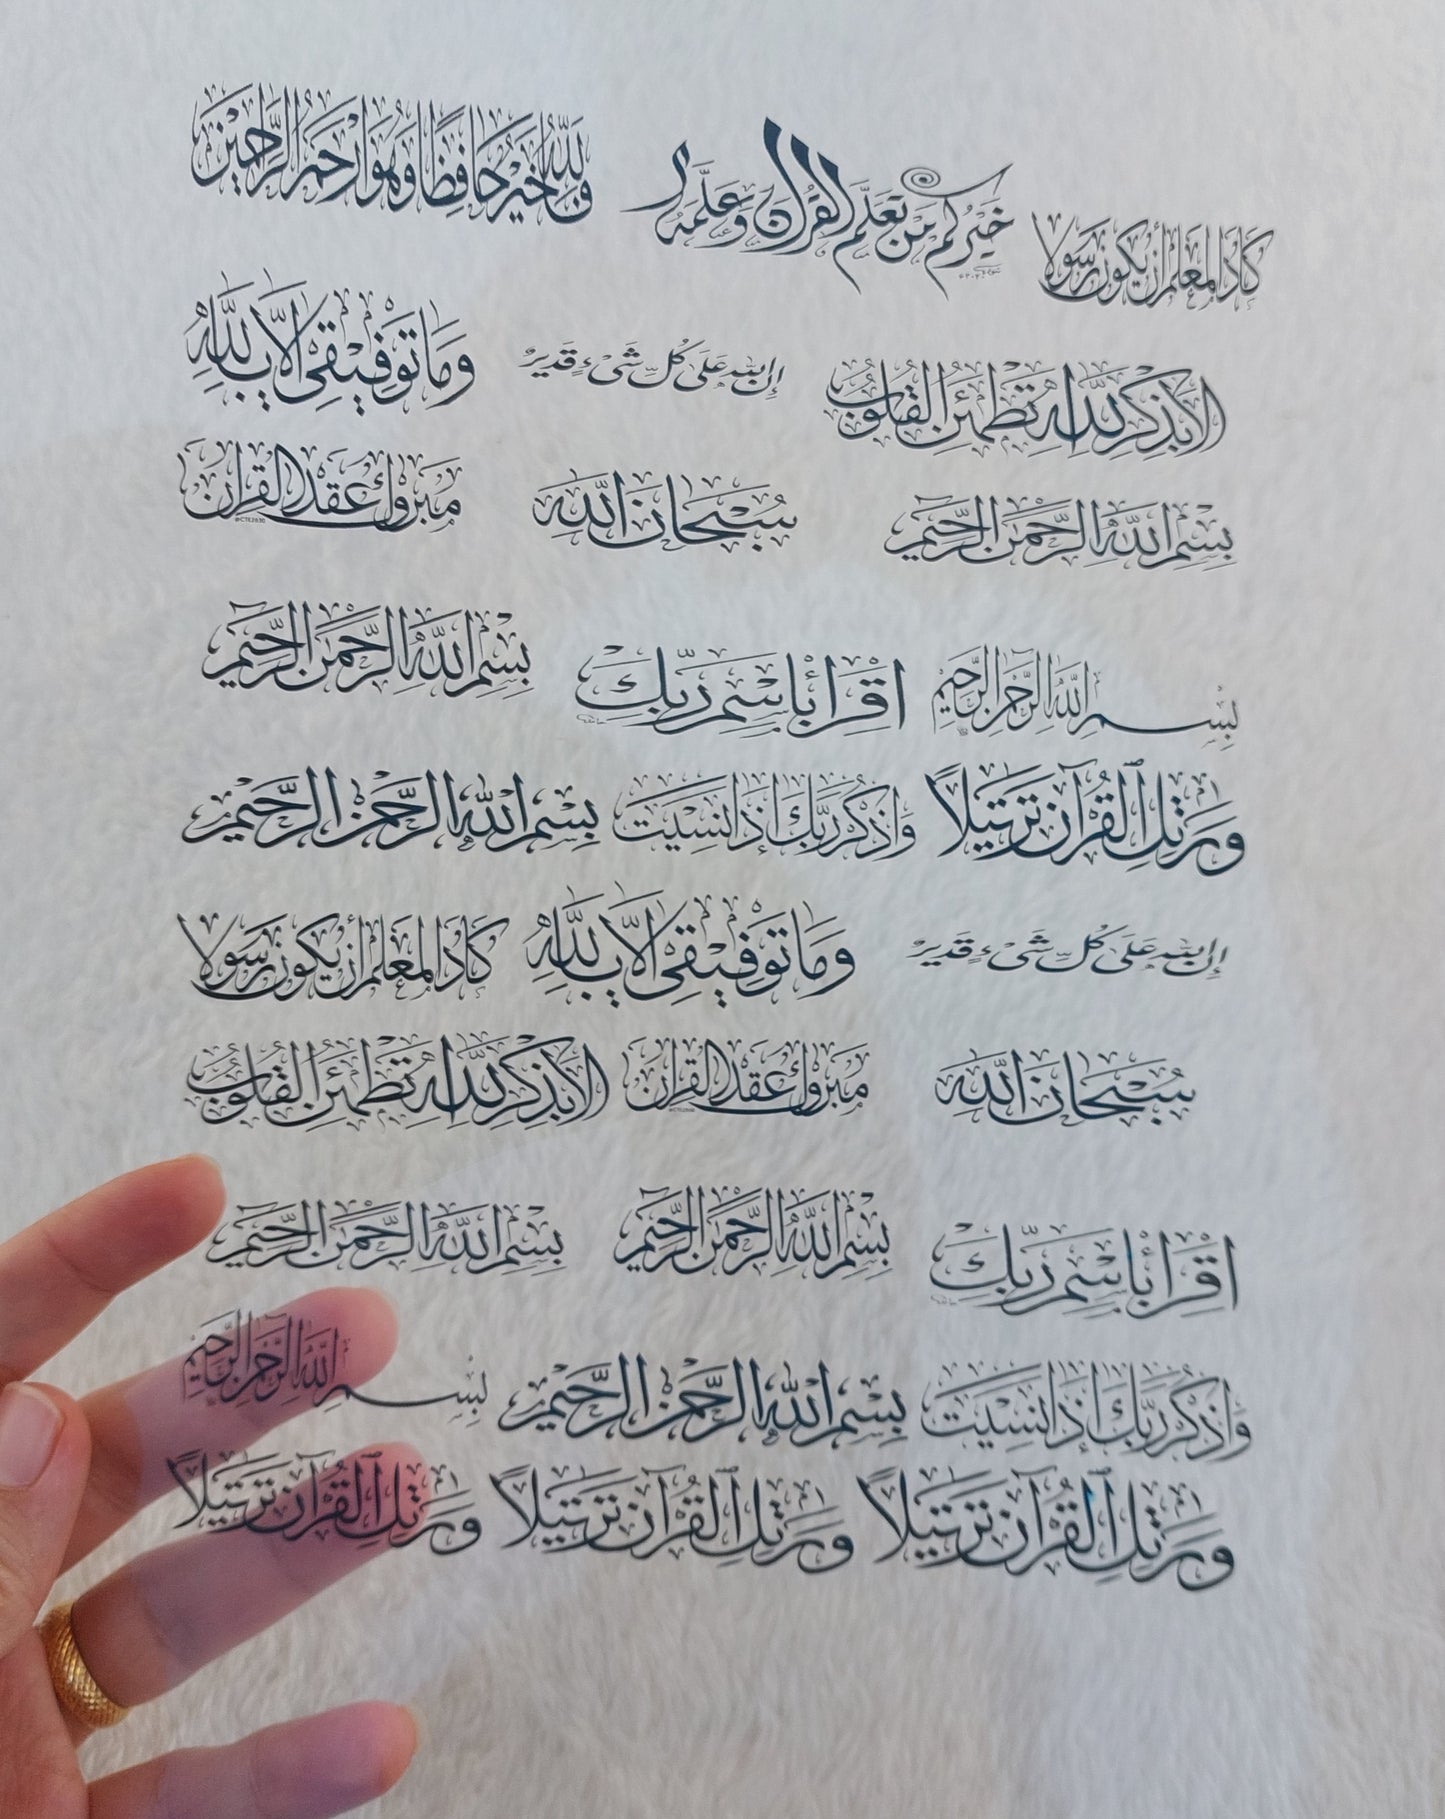 فالله خير حافظا وهو ارحم الراحمين
خيركم من تعلم القرآن وعلمه
كاد المعلم أن يكون رسولا
وما توفيقي الا بالله
إن الله على كل شيء قدير
الا بذكر الله تطمئن القلوب
مبروك عقد القران
@CTE2030
سبحان الله
بسم الله الرحمن الرحيم
بسم الله الرحمن الرحيم
اقرأ باسم ربك
بسم الله الرحمن الرحيم
بسم الله الرحمن الرحيم
واذكر ربك اذا نسيت
ورتل القرآن ترتيلا
كاد المعلم أن يكون رسولا
وما توفيقي الا بالله
إن الله على كل شيء قدير
الا بذكر الله تطمئن القلوب
مبروك عقد القران
@CTE2030
سبحان الله
بسم الله الرحمن الرحيم
بسم الله الرحمن الرحيم
اقرأ باسم ربك
بسم الله الرحمن الرحيم
بسم الله الرحمن الرحيم
واذكر ربك اذا نسيت
ورتل القرآن ترتيلا
ورتل القرآن ترتيلا
ورتل القرآن ترتيلا